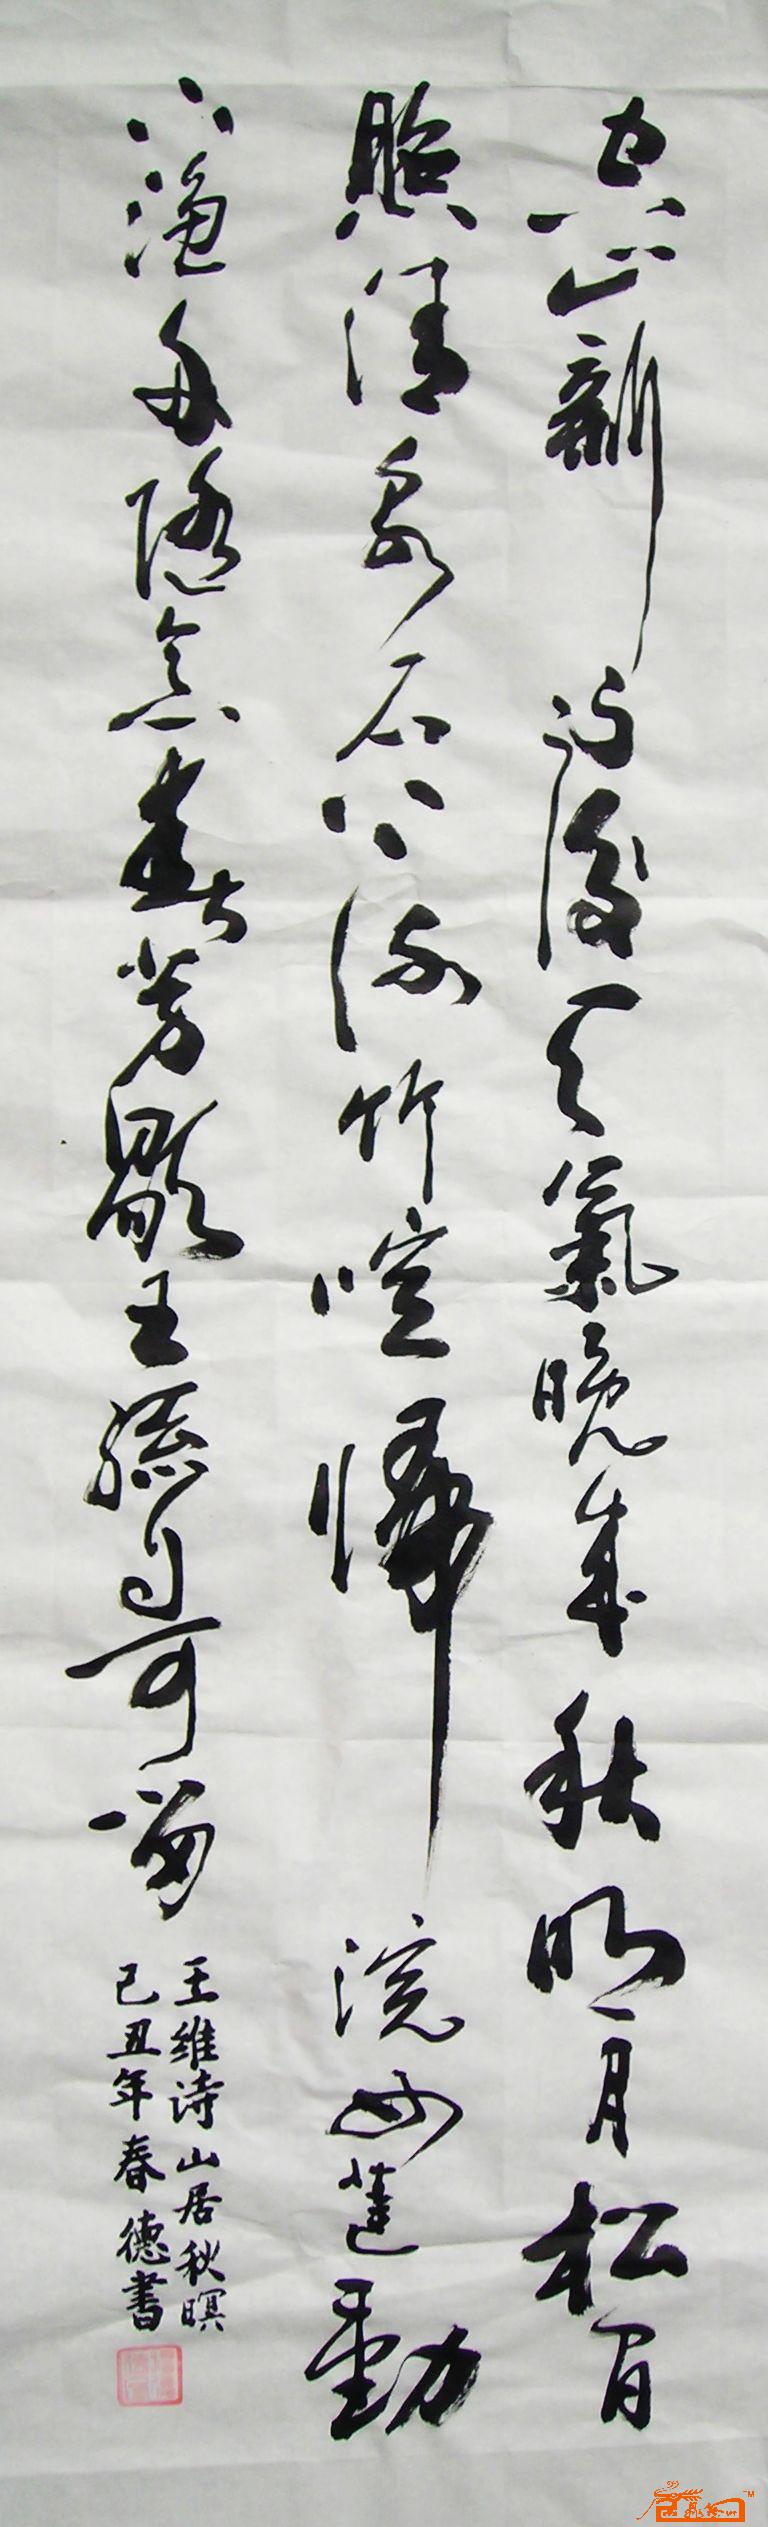 空山新雨後天氣晚來秋明月松間
照清泉石上流竹喧歸浣女蓮動
下漁舟隨意春芳歇王孫自可留
王維詩山居秋暝
己丑年春德書